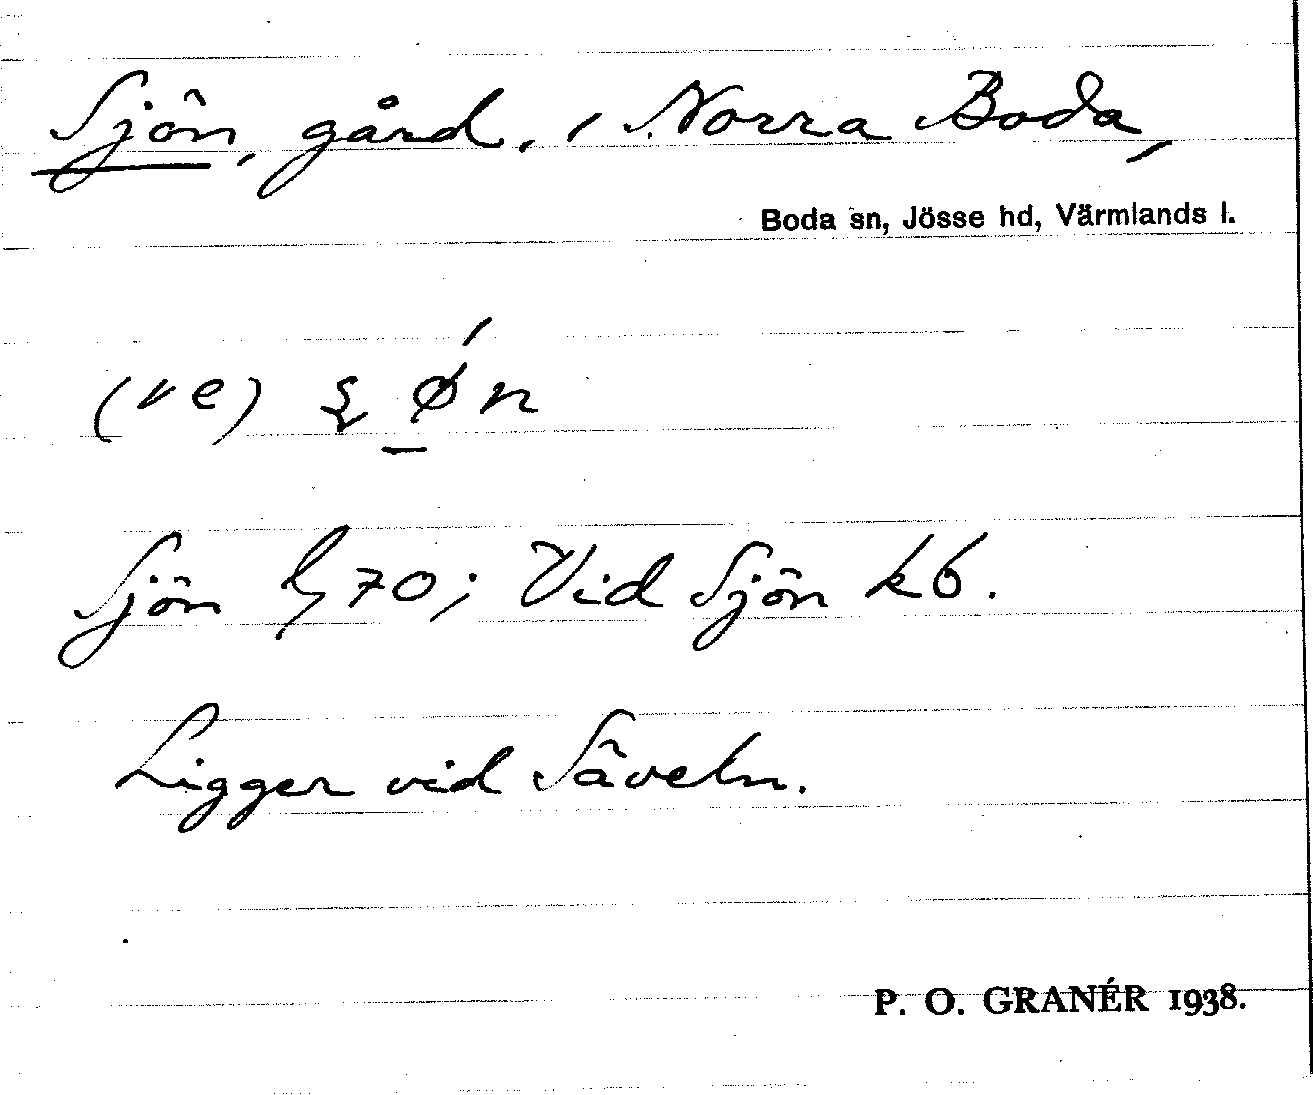 Sjön, gård, i Norra Boda,
Boda sn, Jösse hd, Värmlands l.
(ve) ʂ ǿn
Sjön 70; Vid Sjön kb.
Ligger vid Säveln.
P. O. GRANÉR 1938.